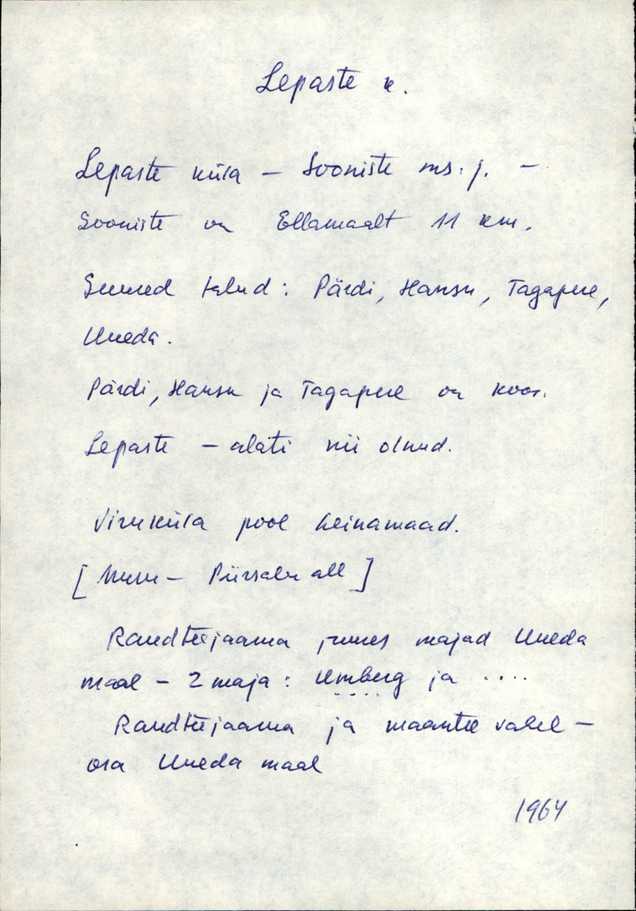 Lepaste k.
Lepaste küla – Sooniste ms. j. –
Sooniste on Ellamaalt 11 km.
Suured talud: Pärdi, Hansu, Tagapere,
Uueda.
Pärdi, Hansu ja Tagapere on koos.
Lepaste – alati nii olnud.
Viruküla pool heinamaad.
[ – Piirsalu all ]
Raudteejaama juures majad Uueda
maal – 2 maja: Umberg ja ....
Raudteejaama ja maantee vahel –
osa Uueda maal
1964